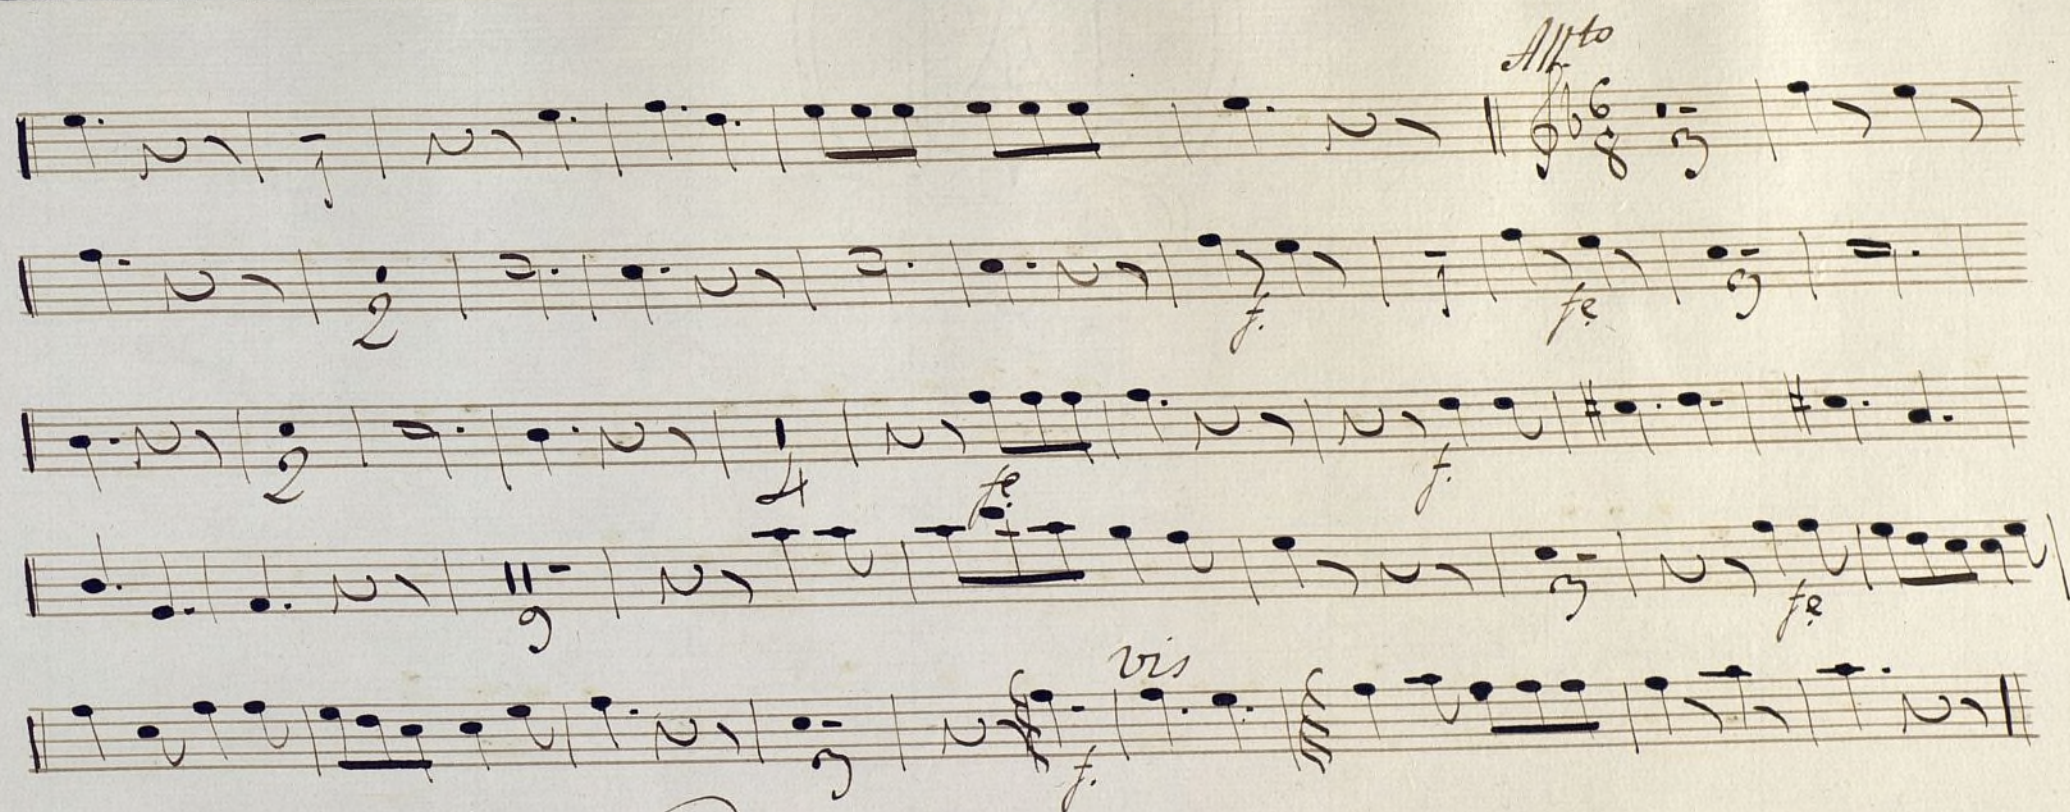 Allto
6 8 3
2 f. fe 3
2 4 fe f.
9 3 fe
vis
3 f.